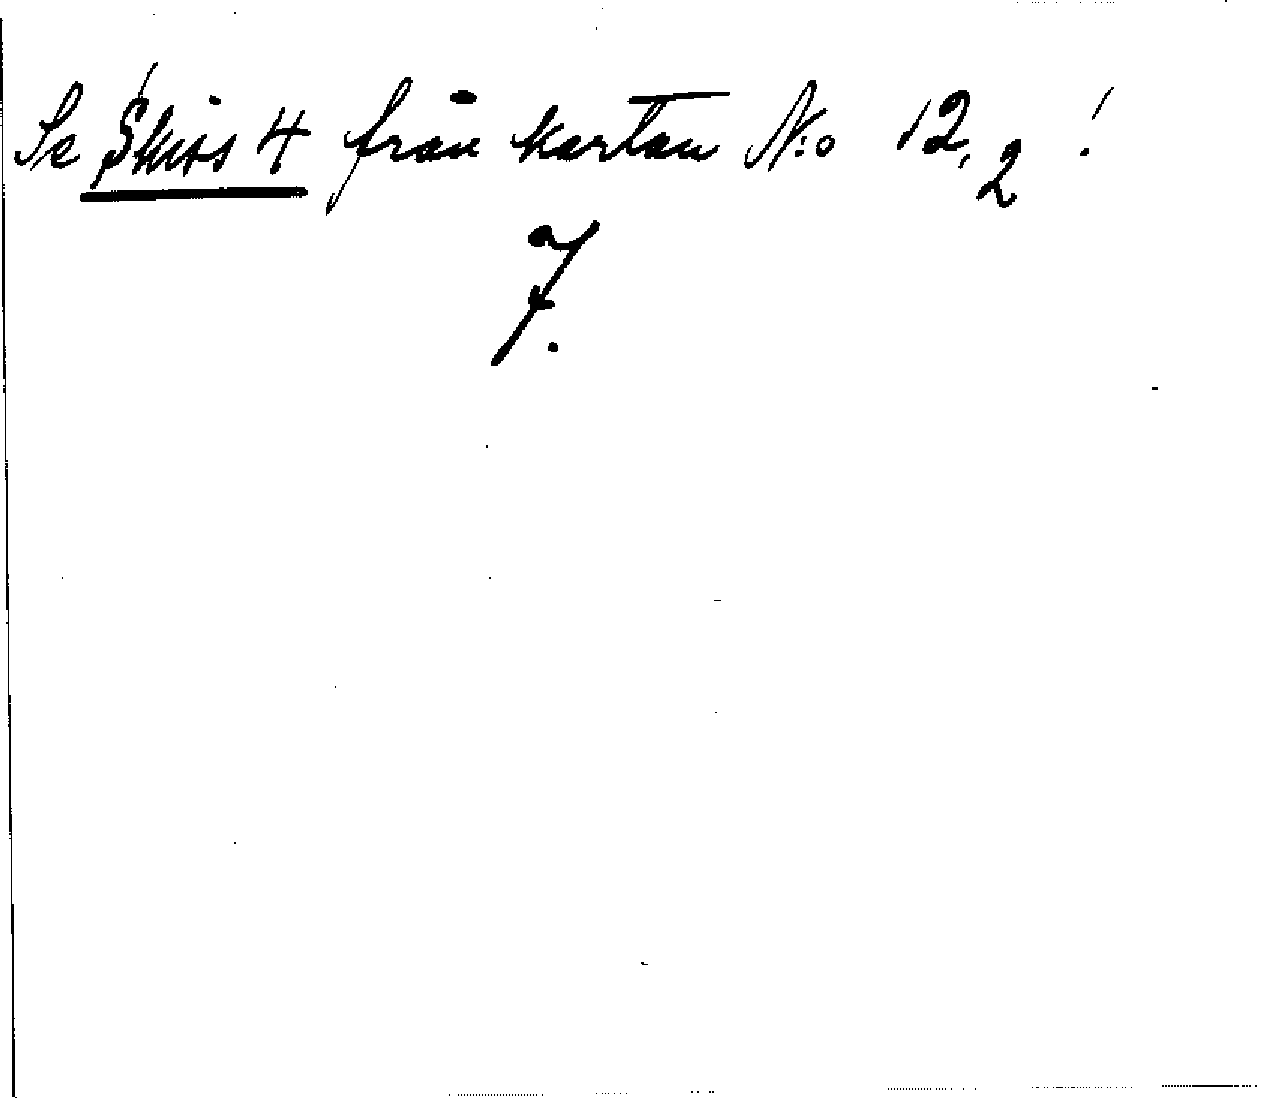 Se Skiss 4 från kartan N:o 12,2 !
7.